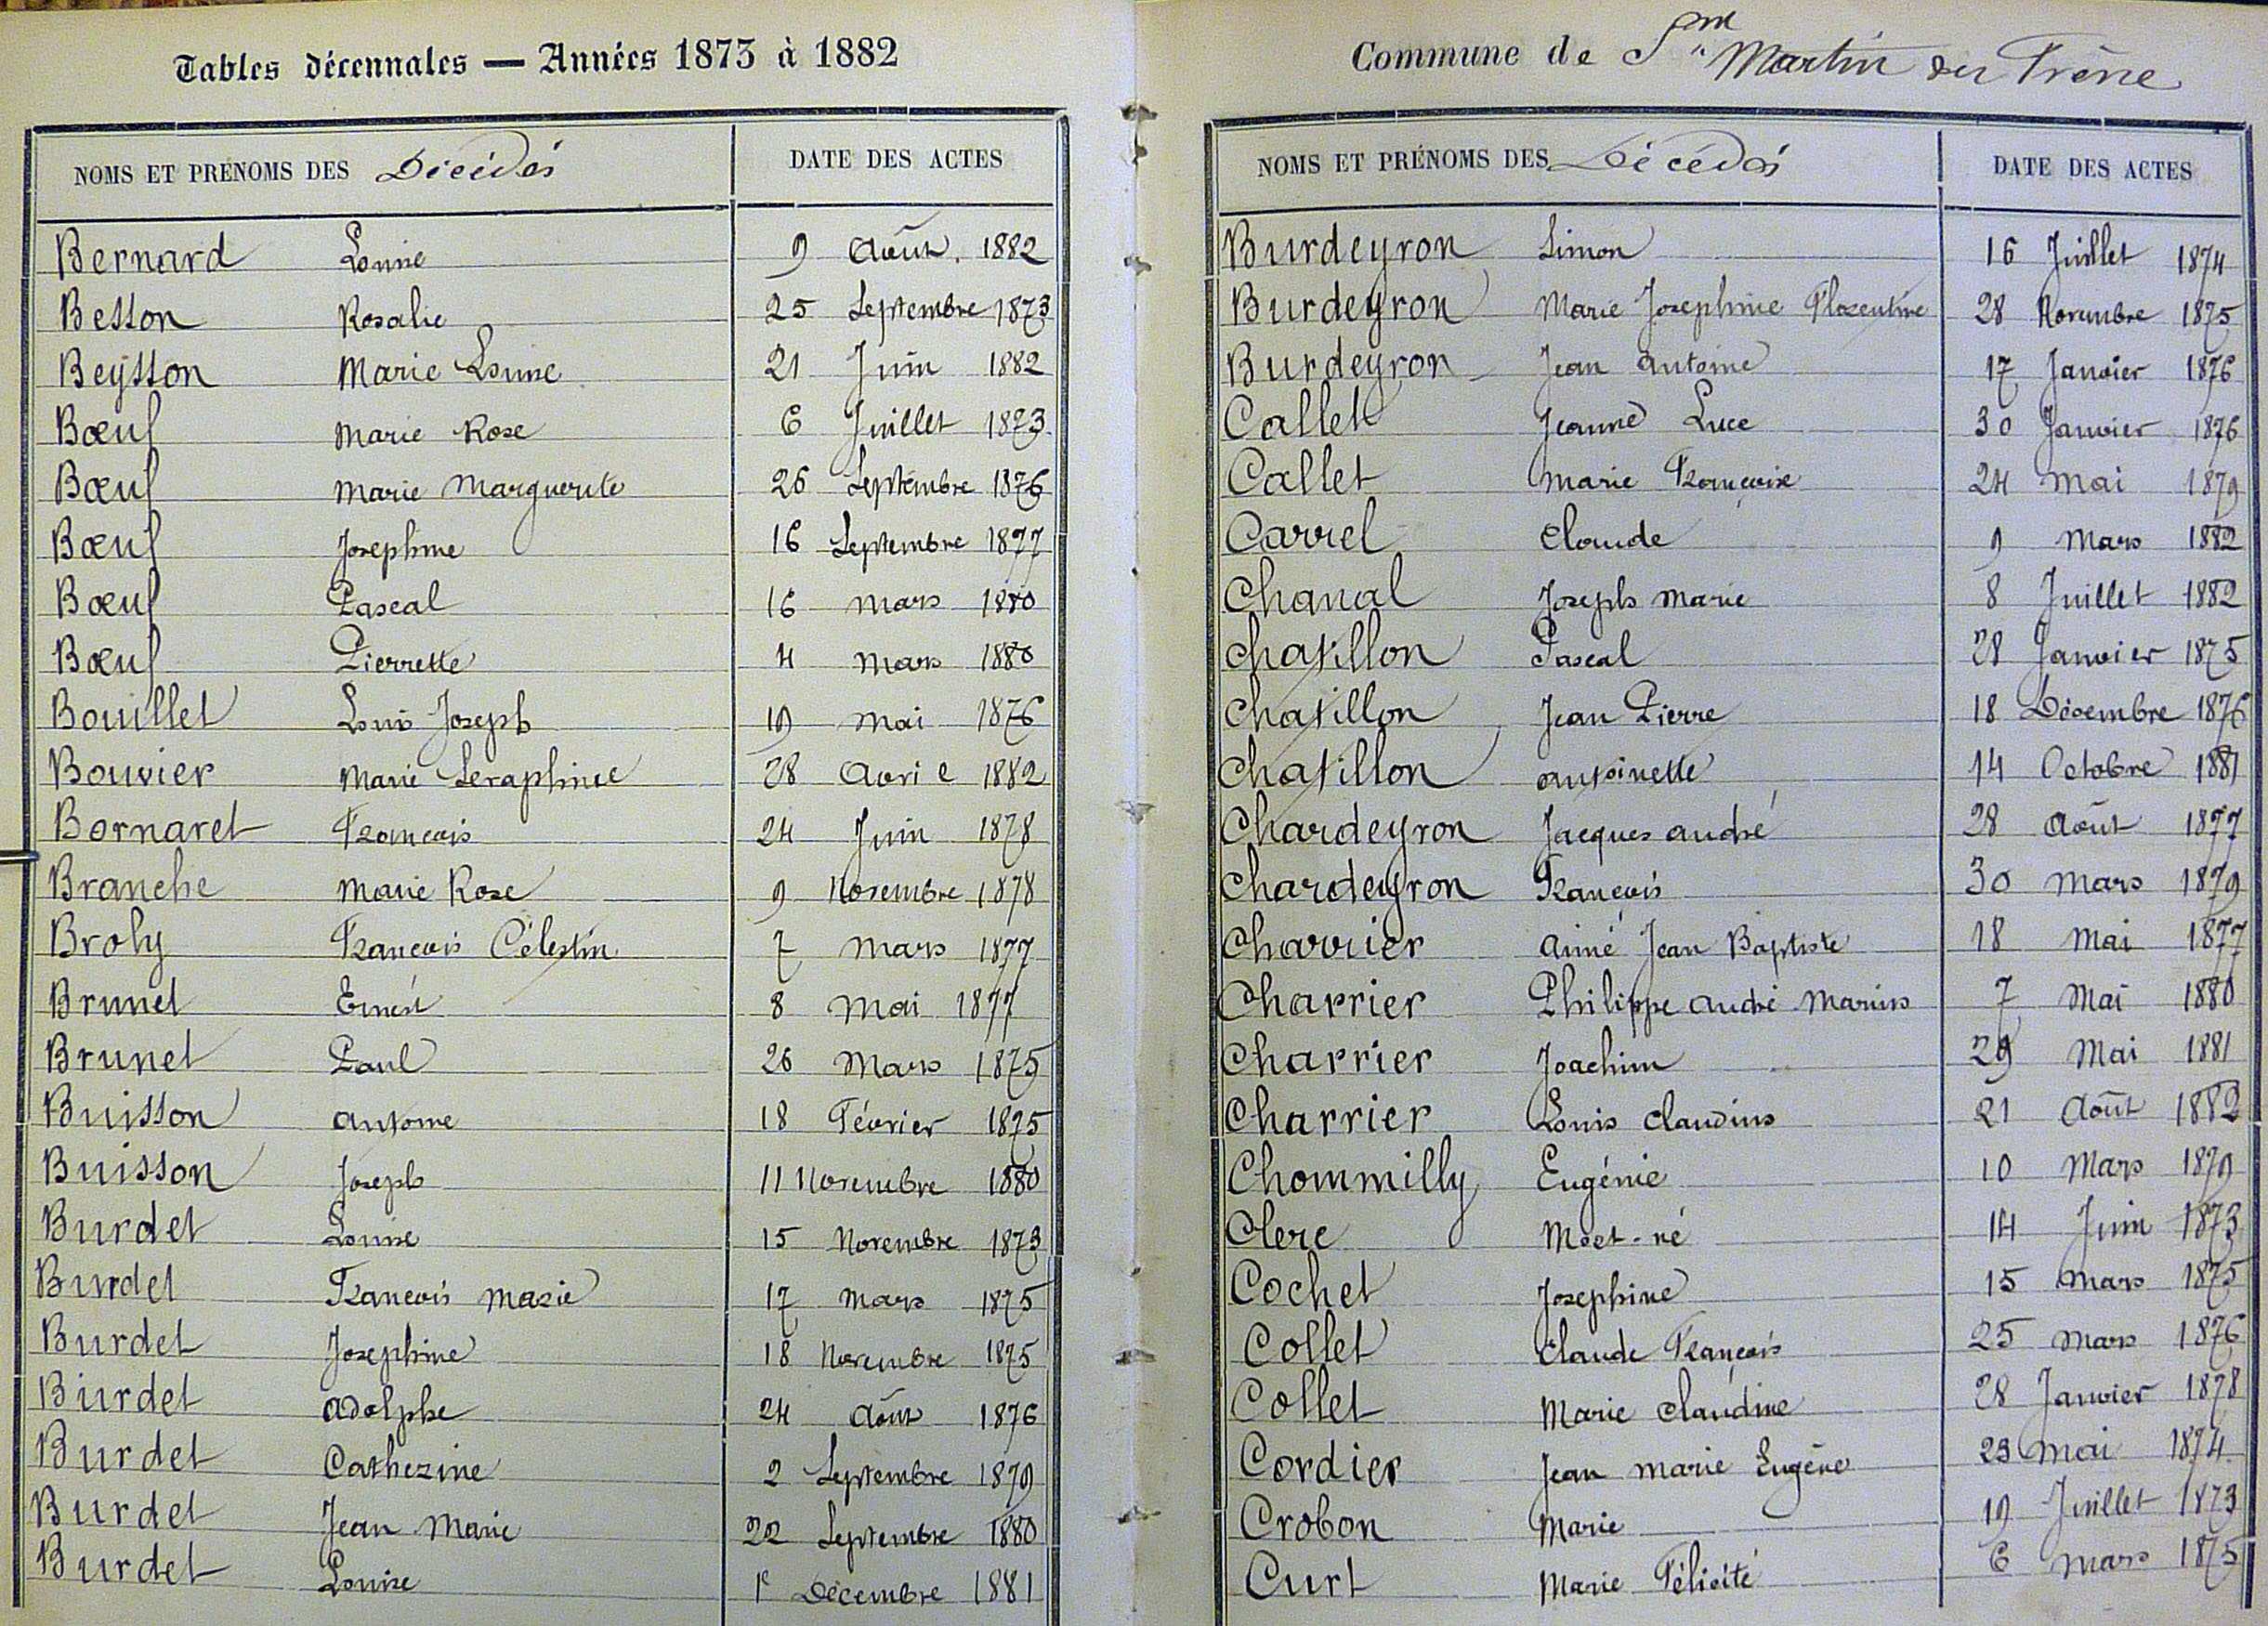 Tables décennales — Années 1873 à 1882
NOMS ET PRÉNOMS DES Décédés DATE DES ACTES
Bernard Louise 9 Août. 1882
Besson Rosalie 25 Septembre 1873
Beysson Marie Louise 21 Juin 1882
Bœuf Marie Rose 6 Juillet 1873
Bœuf Marie Marguerite 26 Septembre 1876
Bœuf Josephine 16 Septembre 1877
Bœuf Pascal 16 Mars 1880
Bœuf Pierrette 4 Mars 1880
Bouillet Louis Joseph 19 Mai 1876
Bouvier Marie Seraphine 28 Avril 1882
Bornaret François 24 Juin 1878
Branche Marie Rose 9 Novembre 1878
Broly François Célestin 7 Mars 1877
Brunet Ernest 8 Mai 1877
Brunet Paul 26 Mars 1875
Buisson Antoine 18 Février 1875
Buisson Joseph 11 Novembre 1880
Burdet Louise 15 Novembre 1873
Burdet François Marie 17 Mars 1875
Burdet Josephine 18 Novembre 1875
Burdet Adolphe 24 Août 1876
Burdet Catherine 2 Septembre 1879
Burdet Jean Marie 22 Septembre 1880
Burdet Louise 1e Décembre 1881
Commune de St Martin du Frêne
NOMS ET PRÉNOMS DES Décédés DATE DES ACTES
Burdeyron Simon 16 Juillet 1874
Burdeyron Marie Josephine Florentine 28 Novembre 1875
Burdeyron Jean Antoine 17 Janvier 1876
Callet Jeanne Luce 30 Janvier 1876
Callet Marie Françoise 24 Mai 1879
Carrel Claude 9 Mars 1882
Chanal Joseph Marie 8 Juillet 1882
Chatillon Pascal 28 Janvier 1875
Chatillon Jean Pierre 18 Décembre 1876
Chatillon Antoinette 14 Octobre 1881
Chardeyron Jacques André 28 Août 1877
Chardeyron François 30 Mars 1879
Charrier Aimé Jean Baptiste 18 Mai 1877
Charrier Philippe André Marius 7 Mai 1880
Charrier Joachim 29 Mai 1881
Charrier Louis Claudius 21 Août 1882
Chommilly Eugénie 10 Mars 1879
Clerc Mort-né 14 Juin 1873
Cochet Josephine 15 Mars 1875
Collet Claude François 25 Mars 1876
Collet Marie Claudine 28 Janvier 1878
Cordier Jean Marie Eugène 23 Mai 1874
Crobon Marie 19 Juillet 1873
Curt Marie Félicité 6 Mars 1875